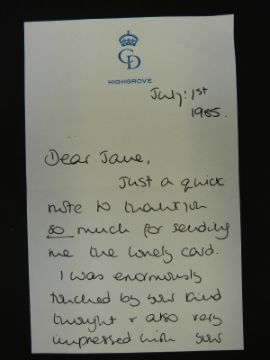 CD
HIGHGROVE
July: 1st
1985.
Dear Jane,
Just a quick
note to thank you
so much for sending
me the lovely card.
I was enormously
touched by your kind
thought & also very
impressed with your